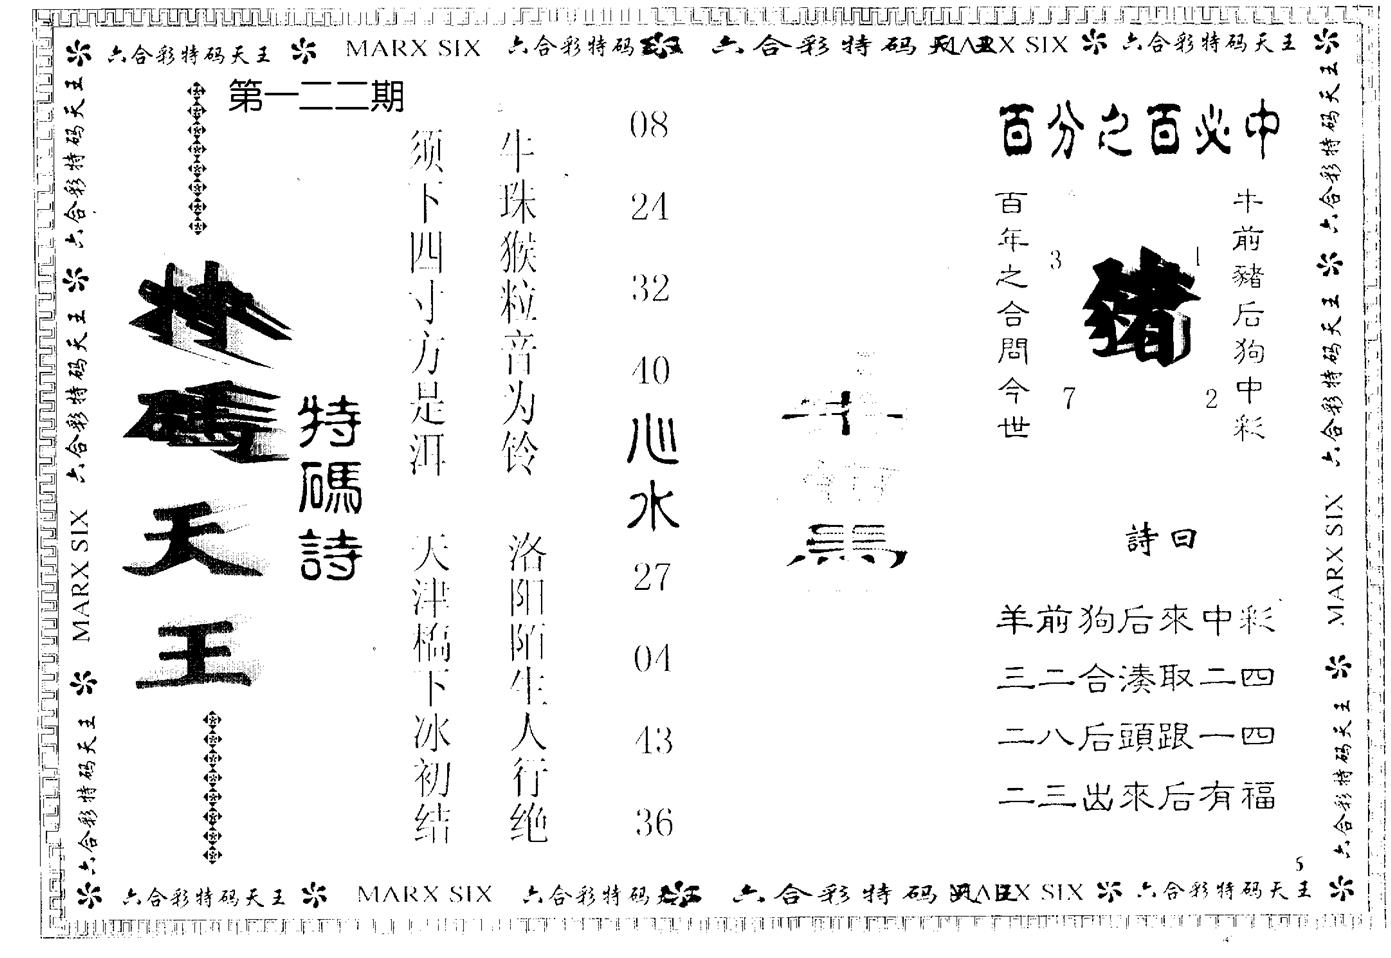 六合彩特码天王 MARX SIX 六合彩特码 六合彩特码天王 MARX SIX 六合彩特码天王
第一二二期
特碼天王
特碼詩
须下四寸方是洱 天津槗下冰初结
牛珠猴粒音为铃 洛阳陌生人行绝
08
24
32
40
心水
27
04
43
36
百分之百必中
牛前豬后狗中彩
豬
1
3
7
2
百年之合問今世
詩曰
羊前狗后來中彩
三二合湊取二四
二八后頭跟一四
二三出來后有福
5
六合彩特码天王 六合彩特码天王 MARX SIX 六合彩特码天王
六合彩特码天王 六合彩特码天王 MARX SIX 六合彩特码天王
六合彩特码天王 MARX SIX 六合彩特码 六合彩特码 MARX SIX 六合彩特码天王